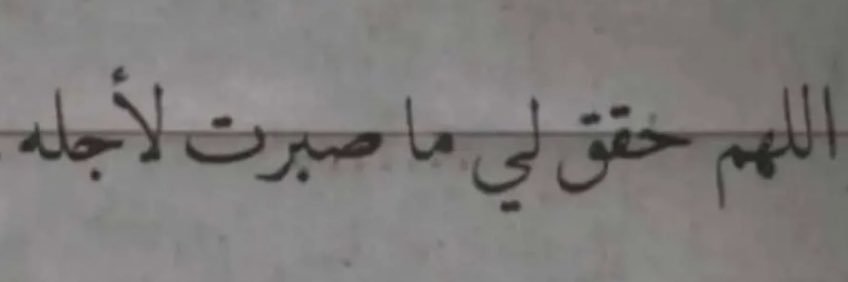 اللهم حقق لي ما صبرت لأجله